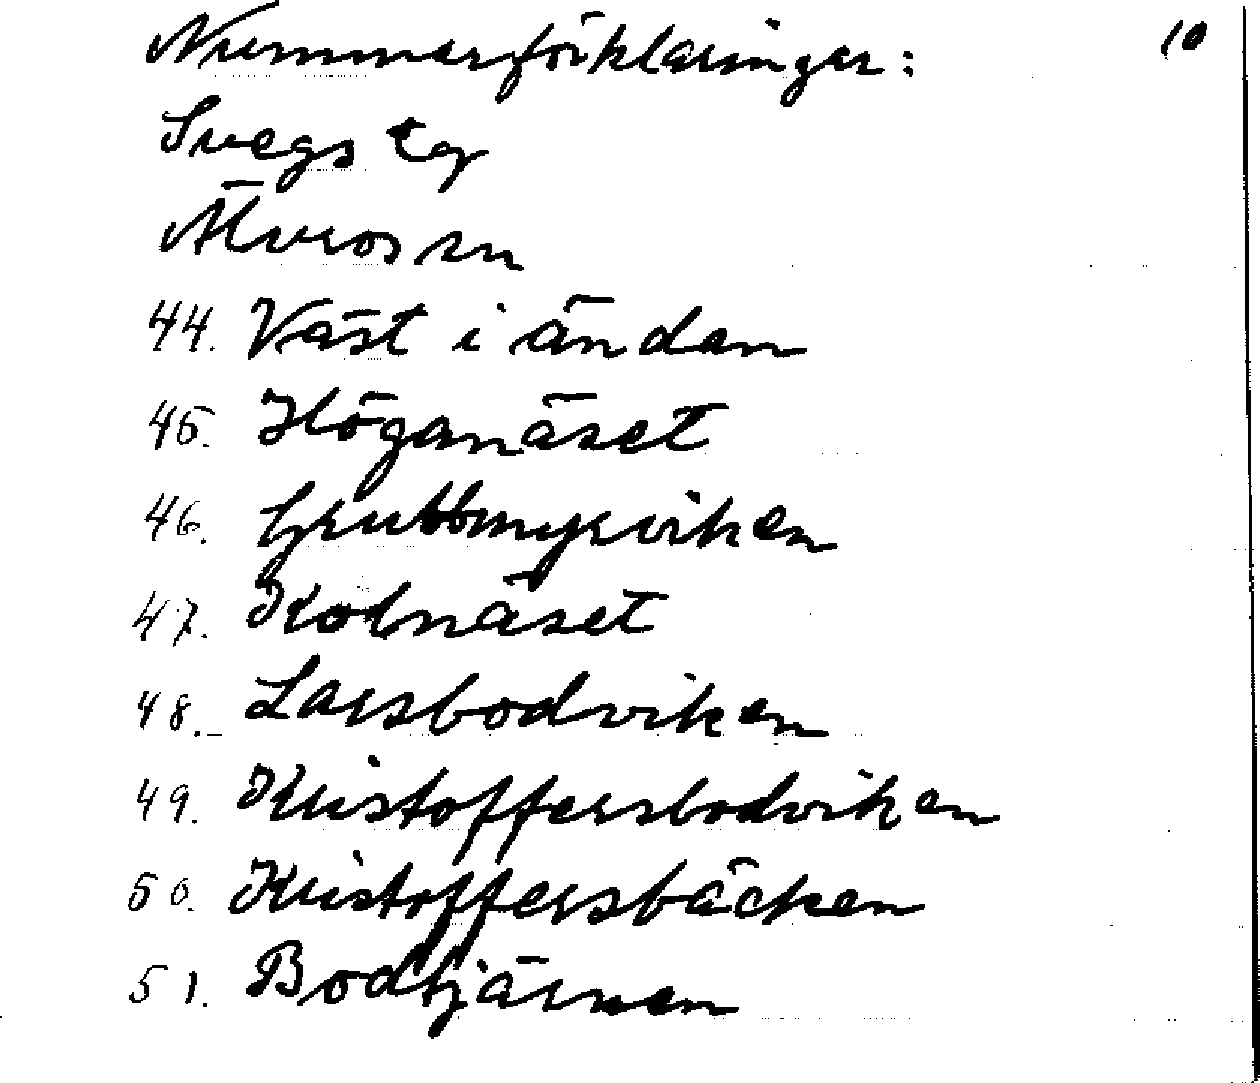 Nummerförklaringar: 10
Svegs tg
Älvros sn
44. Väst i ändan
45. Höganäset
46. Grubbmyrviken
47. Kolnäset
48. Larsbodviken
49. Kristoffersbodviken
50. Kristoffersbäcken
51. Bodtjärnen